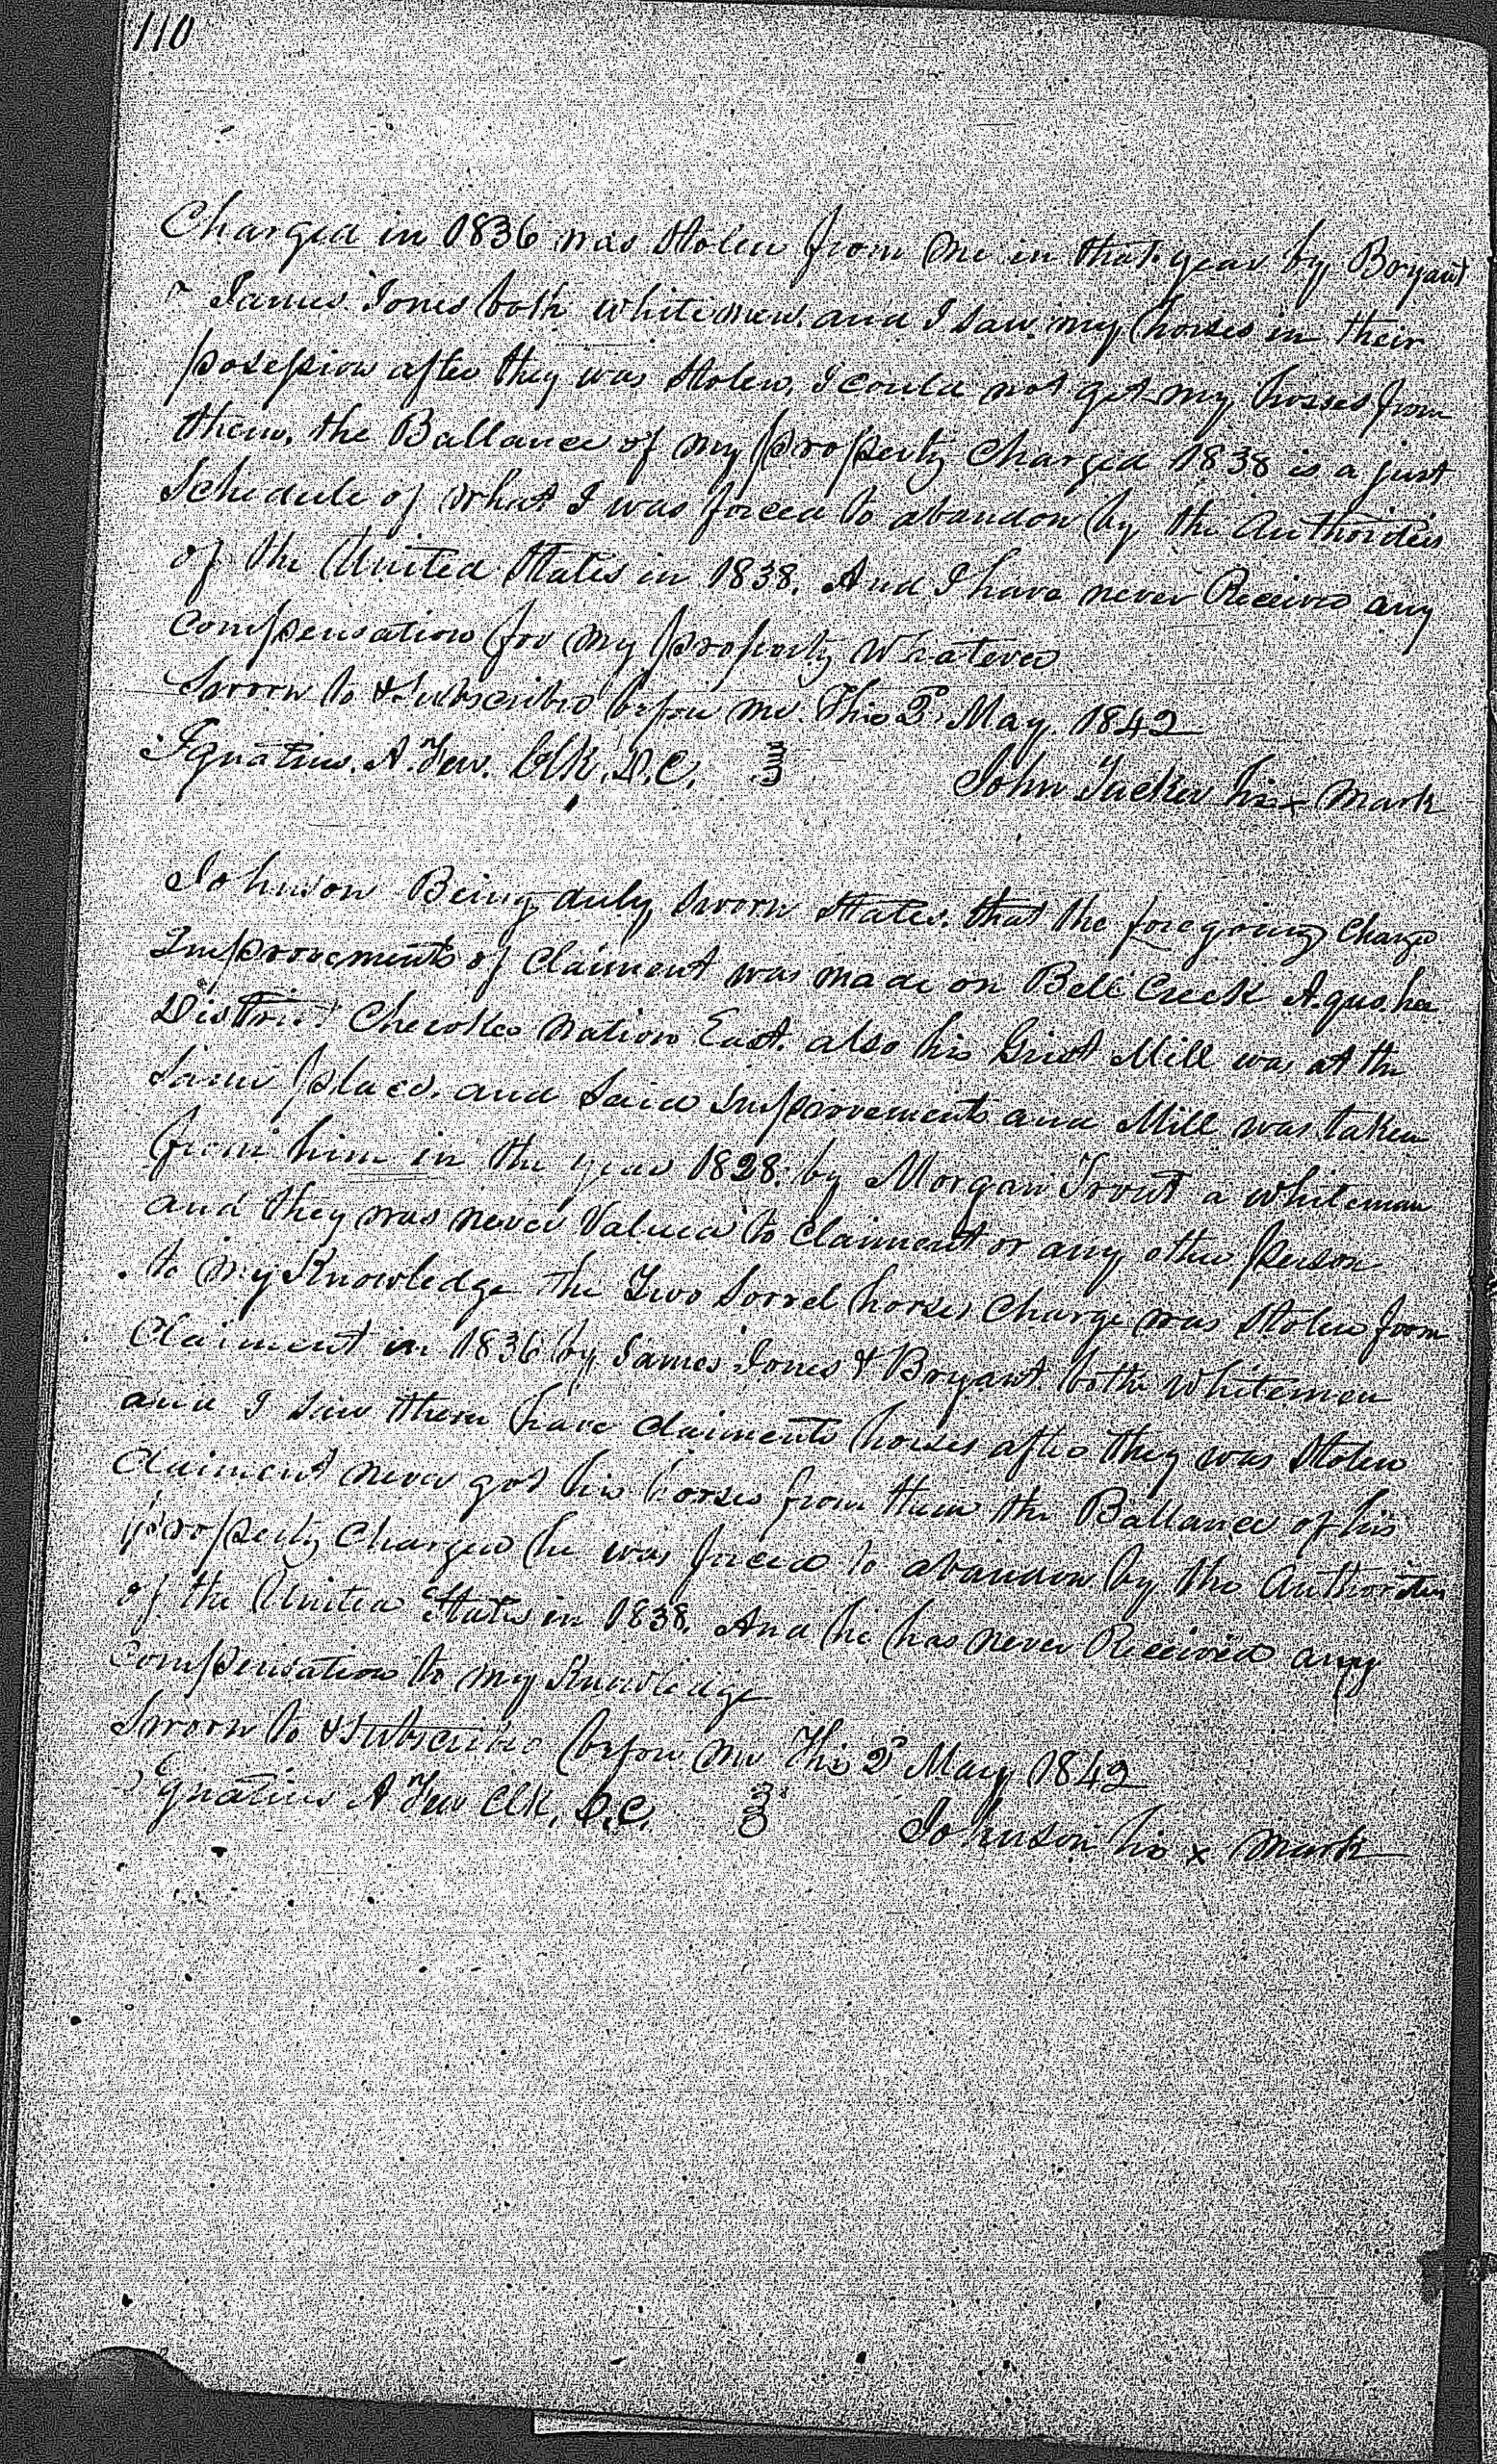 110
Charged in 1836 was stolen from me in that year by Bryant
& James Jones both white men. and I saw my horses in their
posession after they was stolen, I could not get my horses from
them, the Ballance of my property charged 1838 is a just
Schedule of what I was forced to abandon by the Authorities
of the United States in 1838. And I have never Received any
compensation for my property whatever
Sworn to & Subscribed before me This 2d May. 1842
Ignatius. A. Few. Clk. D.C. John Tucker his x mark
Johnson Being duly sworn states. that the foregoing charge
Improvements of claiment was made on Bell Creek
District Cherokee Nation East. also his Grist Mill was at the
same place. and said Improvements and Mill was taken
from him in the year 1828. by Morgan Trout a whiteman
and they was never valued to claiment or any other person
to my Knowledge the Two sorrel horses charge was stolen from
Claiment in 1836 by James Jones & Bryant both whitemen
and I saw them have claiments horses after they was stolen
claiment never got his horses from them the Ballance of his
property charged he was forced to abandon by the Authorities
of the United States in 1838. And he has never Received any
compensation to my Knowledge
Sworn to & subscribed before me This 2d May 1842
Ignatius A Few Clk, D.C. Johnson his x mark